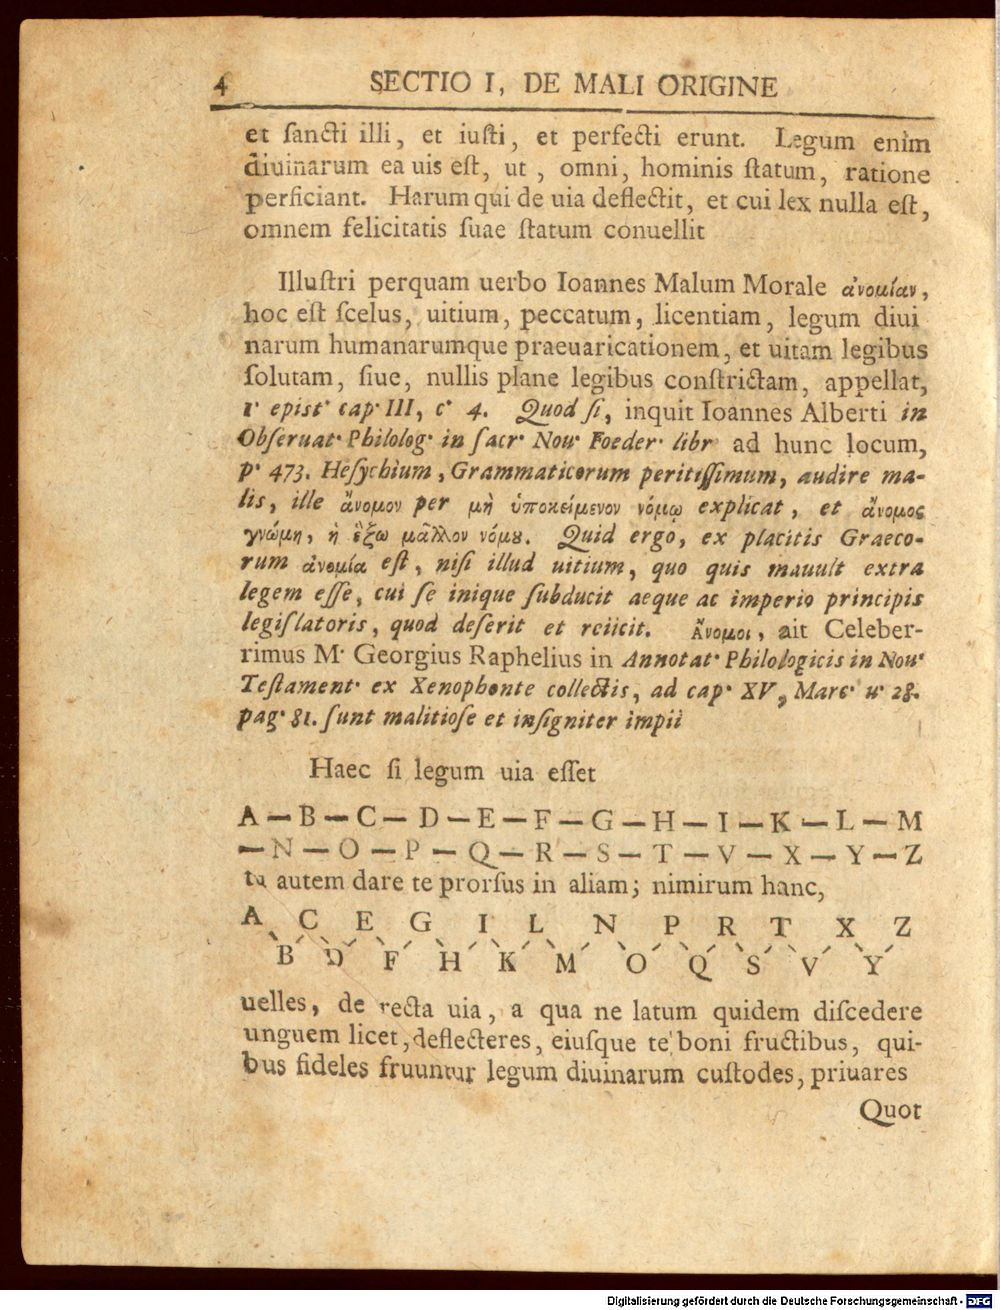 4 SECTIO I, DE MALI ORIGINE
et ſancti illi, et iuſti, et perfecti erunt. Legum enim
diuinarum ea uis eſt, ut, omni, hominis ſtatum, ratione
perficiant. Harum qui de uia deflectit, et cui lex nulla eſt,
omnem felicitatis ſuae ſtatum conuellit
Illuſtri perquam uerbo Ioannes Malum Morale ἀνομίαν,
hoc eſt ſcelus, uitium, peccatum, licentiam, legum diui
narum humanarumque praeuaricationem, et uitam legibus
ſolutam, ſiue, nullis plane legibus conſtrictam, appellat,
1· epiſt· cap· III, c· 4. Quod ſi, inquit Ioannes Alberti in
Obſeruat· Philolog· in ſacr· Nou· Foeder· libr· ad hunc locum,
p· 473. Heſychium, Grammaticorum peritiſſimum, audire ma-
lis, ille ἄνομον per μὴ ὑποκείμενον νόμῳ explicat, et ἄνομος
γνώμη, ἡ ἔξω μᾶλλον νόμȣ. Quid ergo, ex placitis Graeco-
rum ἀνομία eſt, niſi illud uitium, quo quis mauult extra
legem eſſe, cui ſe inique ſubducit aeque ac imperio principis
legiſlatoris, quod deſerit et reiicit. Ἄνομοι, ait Celeber-
rimus M· Georgius Raphelius in Annotat· Philologicis in Nou·
Teſtament· ex Xenophonte collectis, ad cap· XV, Marc· u· 28.
pag· 81. ſunt malitioſe et inſigniter impii
Haec ſi legum uia eſſet
A — B — C — D — E — F — G — H — I — K — L — M
— N — O — P — Q — R — S — T — V — X — Y — Z
tu autem dare te prorſus in aliam; nimirum hanc,
A C E G I L N P R T X Z
B D F H K M O Q S V Y
uelles, de recta uia, a qua ne latum quidem diſcedere
unguem licet, deflecteres, eiuſque te boni fructibus, qui-
bus fideles fruuntur legum diuinarum cuſtodes, priuares
Quot
Digitalisierung gefördert durch die Deutsche Forschungsgemeinschaft - DFG